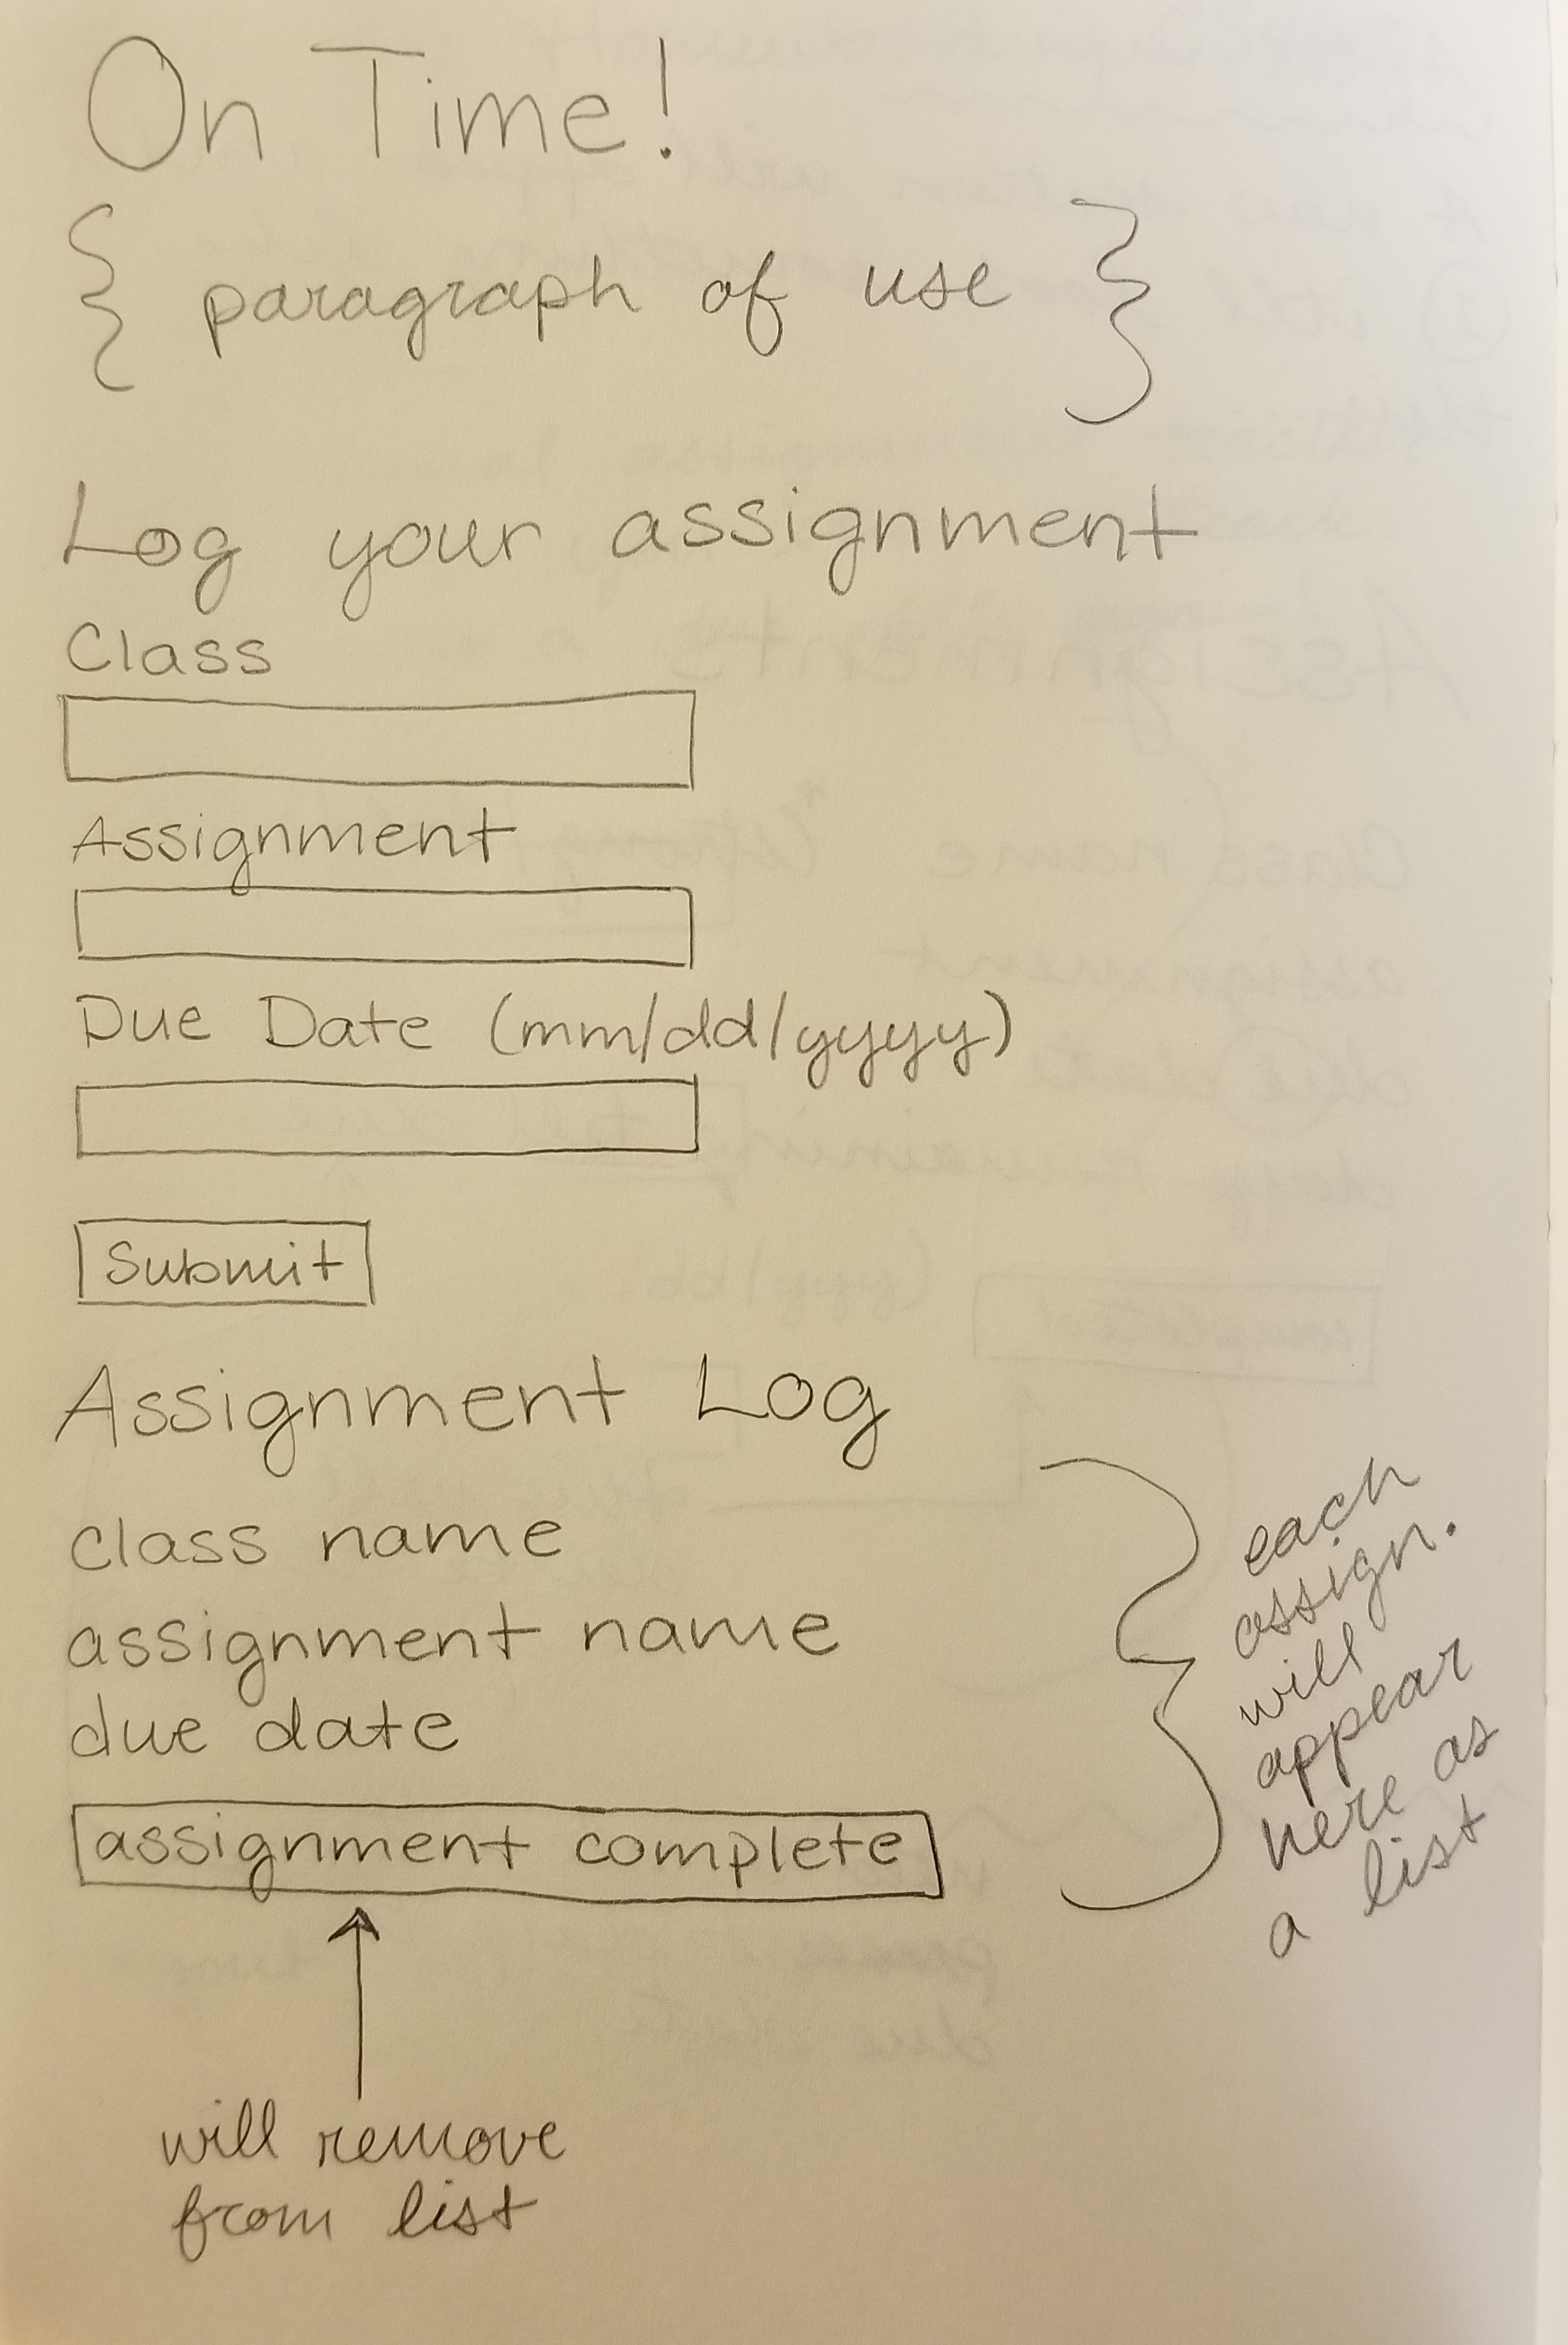 On Time!
{ paragraph of use }
Log your assignment
Class
Assignment
Due Date (mm/dd/yyyy)
Submit
Assignment Log
class name
assignment name
due date
assignment complete
each
assign.
will
appear
here as
a list
will remove
from list